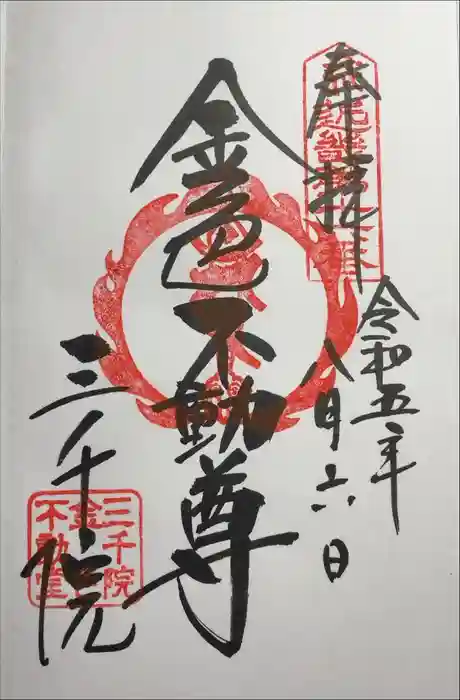 奉拝
令和五年
八月六日
金色不動尊
三千院
三千院
金色
不動堂